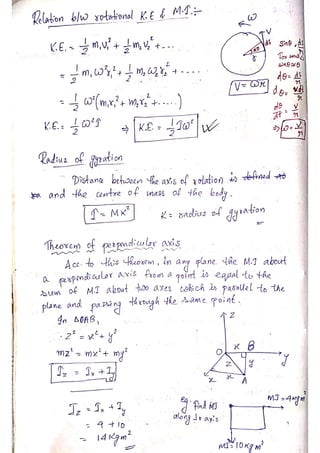 Relation b/w rotational K.E & M.I :-
ω
K.E. = 1/2 m₁v₁² + 1/2 m₂v₂² + ...
V
r
= 1/2 m₁ω²r₁² + 1/2 m₂ω²r₂² + ....
V = ωr
= 1/2 ω²(m₁r₁² + m₂r₂² + .....)
K.E. = 1/2 ω²I ⇒ K.E. = 1/2 Iω²
dθ/dt = v/r
⇒ ω = v/r
Radius of gyration
Distance between the axis of rotation is
and the centre of mass of the body.
I = MK² K = radius of gyration
Theorem of perpendicular axis
Acc. to this theorem, in any plane the MI about
a perpendicular axis from a point is equal to the
sum of MI about two axes which is parallel to the
plane and passing through the same point.
In ΔOAB,
z² = x² + y²
mz² = mx² + my²
Iz = Ix + Iy
Z
O x B
z y y
x A
Iz = Ix + Iy
= 4 + 10
= 14 kg m²
eg: Find MI
along Iz axis
MI = 4kgm²
MI = 10kgm²